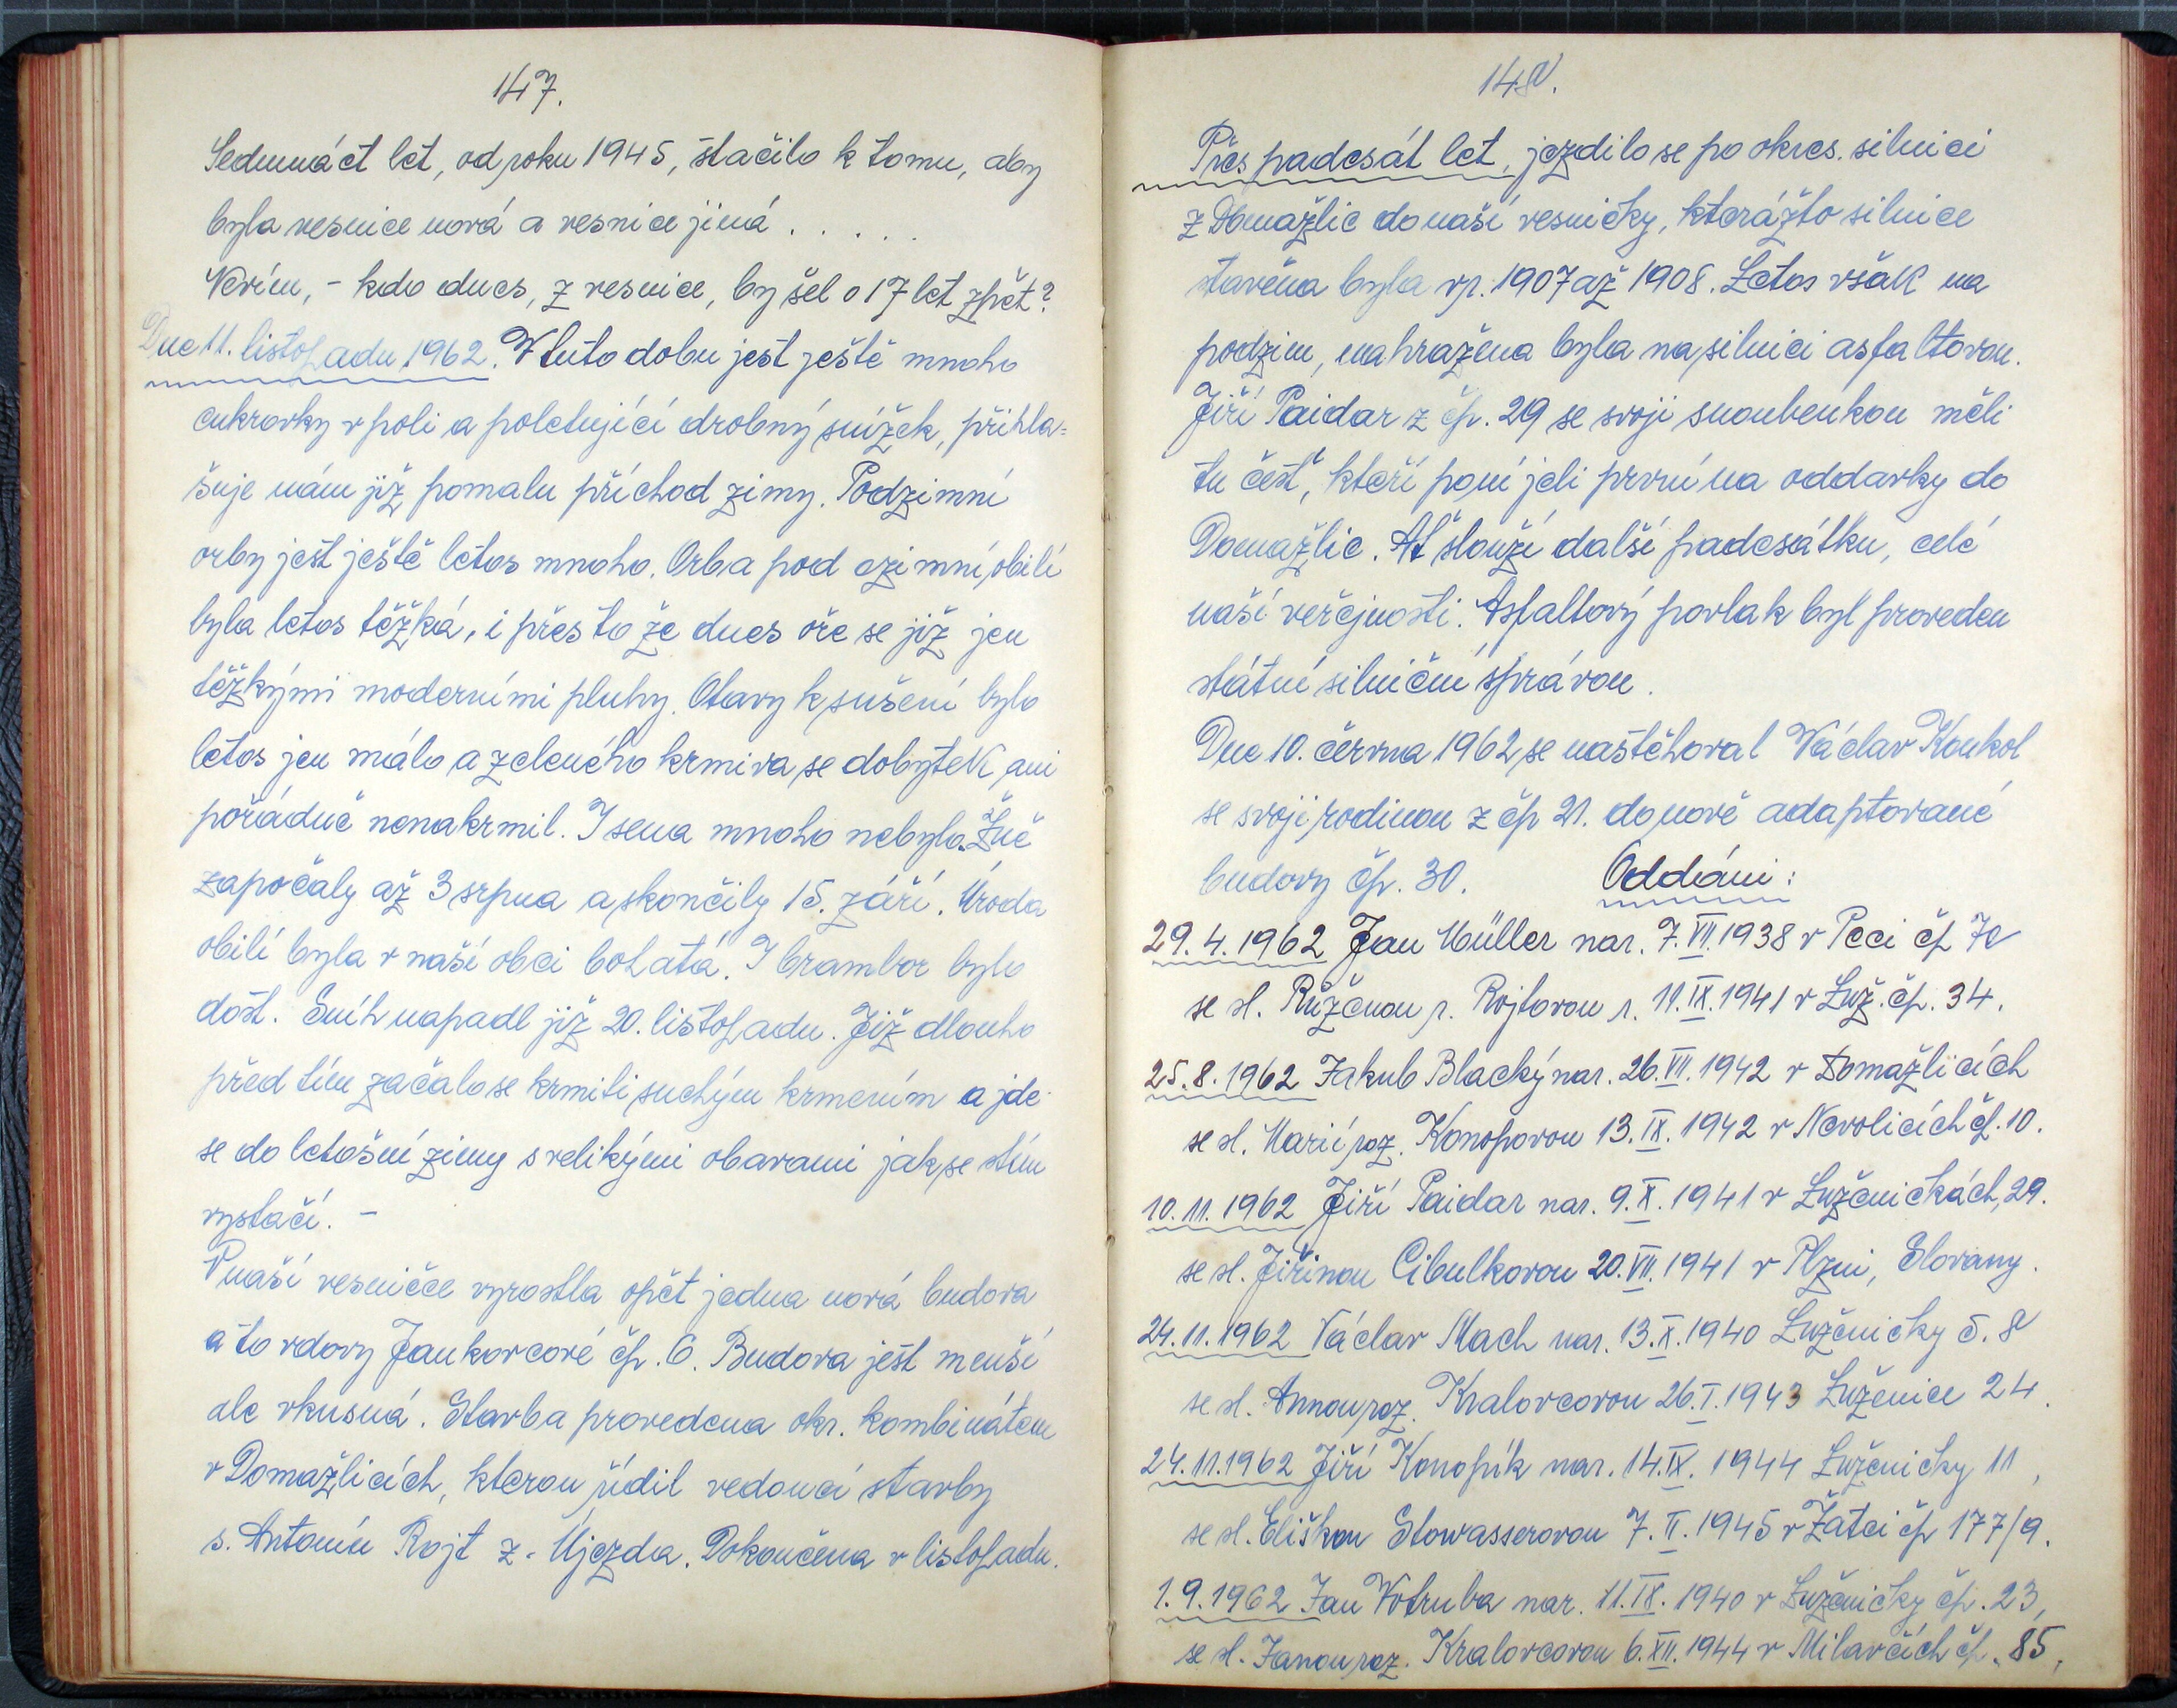 147.
Sedmnáct let, od roku 1945, stačilo k tomu, aby
byla vesnice nová a vesnice jiná . . . . .
Nevím, - kdo dnes, z vesnice, by šel o 17 let zpět?
Dne 11. listopadu 1962. V tuto dobu jest ještě mnoho
cukrovky v poli a poletující drobný snížek, přihla=
šuje nám již pomalu příchod zimy. Podzimní
orby jest ještě letos mnoho. Orba pod ozimní obilí
byla letos těžká, i přes to že dnes oře se již jen
těžkými moderními pluhy. Otavy k sušení bylo
letos jen málo a zeleného krmiva se dobytek ani
pořádně nenakrmil. I sena mnoho nebylo. Žně
započaly až 3 srpna a skončily 15. září. Úroda
obilí byla v naší obci bohatá. I brambor bylo
dost. Sníh napadl již 20. listopadu. Již dlouho
před tím začalo se krmiti suchým krmením a jde
se do letošní zimy s velikými obavami jak se s tím
vystačí. -
V naší vesničce vyrostla opět jedna nová budova
a to vdovy Jankovcové čp. 6. Budova jest menší
ale vkusná. Stavba provedena okr. kombinátem
v Domažlicích, kterou řídil vedoucí stavby
s. Antonín Rojt z Újezda. Dokončena v listopadu.
148.
Přes padesát let, jezdilo se po okres. silnici
z Domažlic do naší vesničky, kterážto silnice
stavěna byla v r. 1907 až 1908. Letos však na
podzim, nahražena byla na silnici asfaltovou.
Jiří Paidar z čp. 29 se svoji snoubenkou měli
tu čest, kteří po ní jeli první na oddavky do
Domažlic. Ať slouží další padesátku, celé
naší veřejnosti. Asfaltový povlak byl proveden
státní silniční správou.
Dne 10. června 1962 se nastěhoval Václav Konkol
se svoji rodinou z čp 21. do nově adaptované
budovy čp. 30. Oddáni:
29.4.1962 Jan Müller nar. 7.VII.1938 v Peci čp 70
se sl. Růženou r. Rojtovou n. 11.IX.1941 v Luž. čp. 34.
25.8.1962 Jakub Blacký nar. 26.VII.1942 v Domažlicích
se sl. Marií roz. Konopovou 13.IX.1942 v Nevolicích čp. 10.
10.11.1962 Jiří Paidar nar. 9.X.1941 v Luženičkách, 29.
se sl. Jiřinou Cibulkovou 20.VII.1941 v Plzni, Slovany.
24.11.1962 Václav Mach nar. 13.X.1940 Luženičky č. 8
se sl. Annou roz. Kralovcovou 26.I.1943 Luženice 24.
24.11.1962 Jiří Konopík nar. 14.IX.1944 Luženičky 11,
se sl. Eliškou Stowasserovou 7.II.1945 v Žatci čp 177/9.
1.9.1962 Jan Votruba nar. 11.IX.1940 v Luženičky čp. 23,
se sl. Janou roz. Kralovcovou 6.XII.1944 v Milavčích čp. 85,